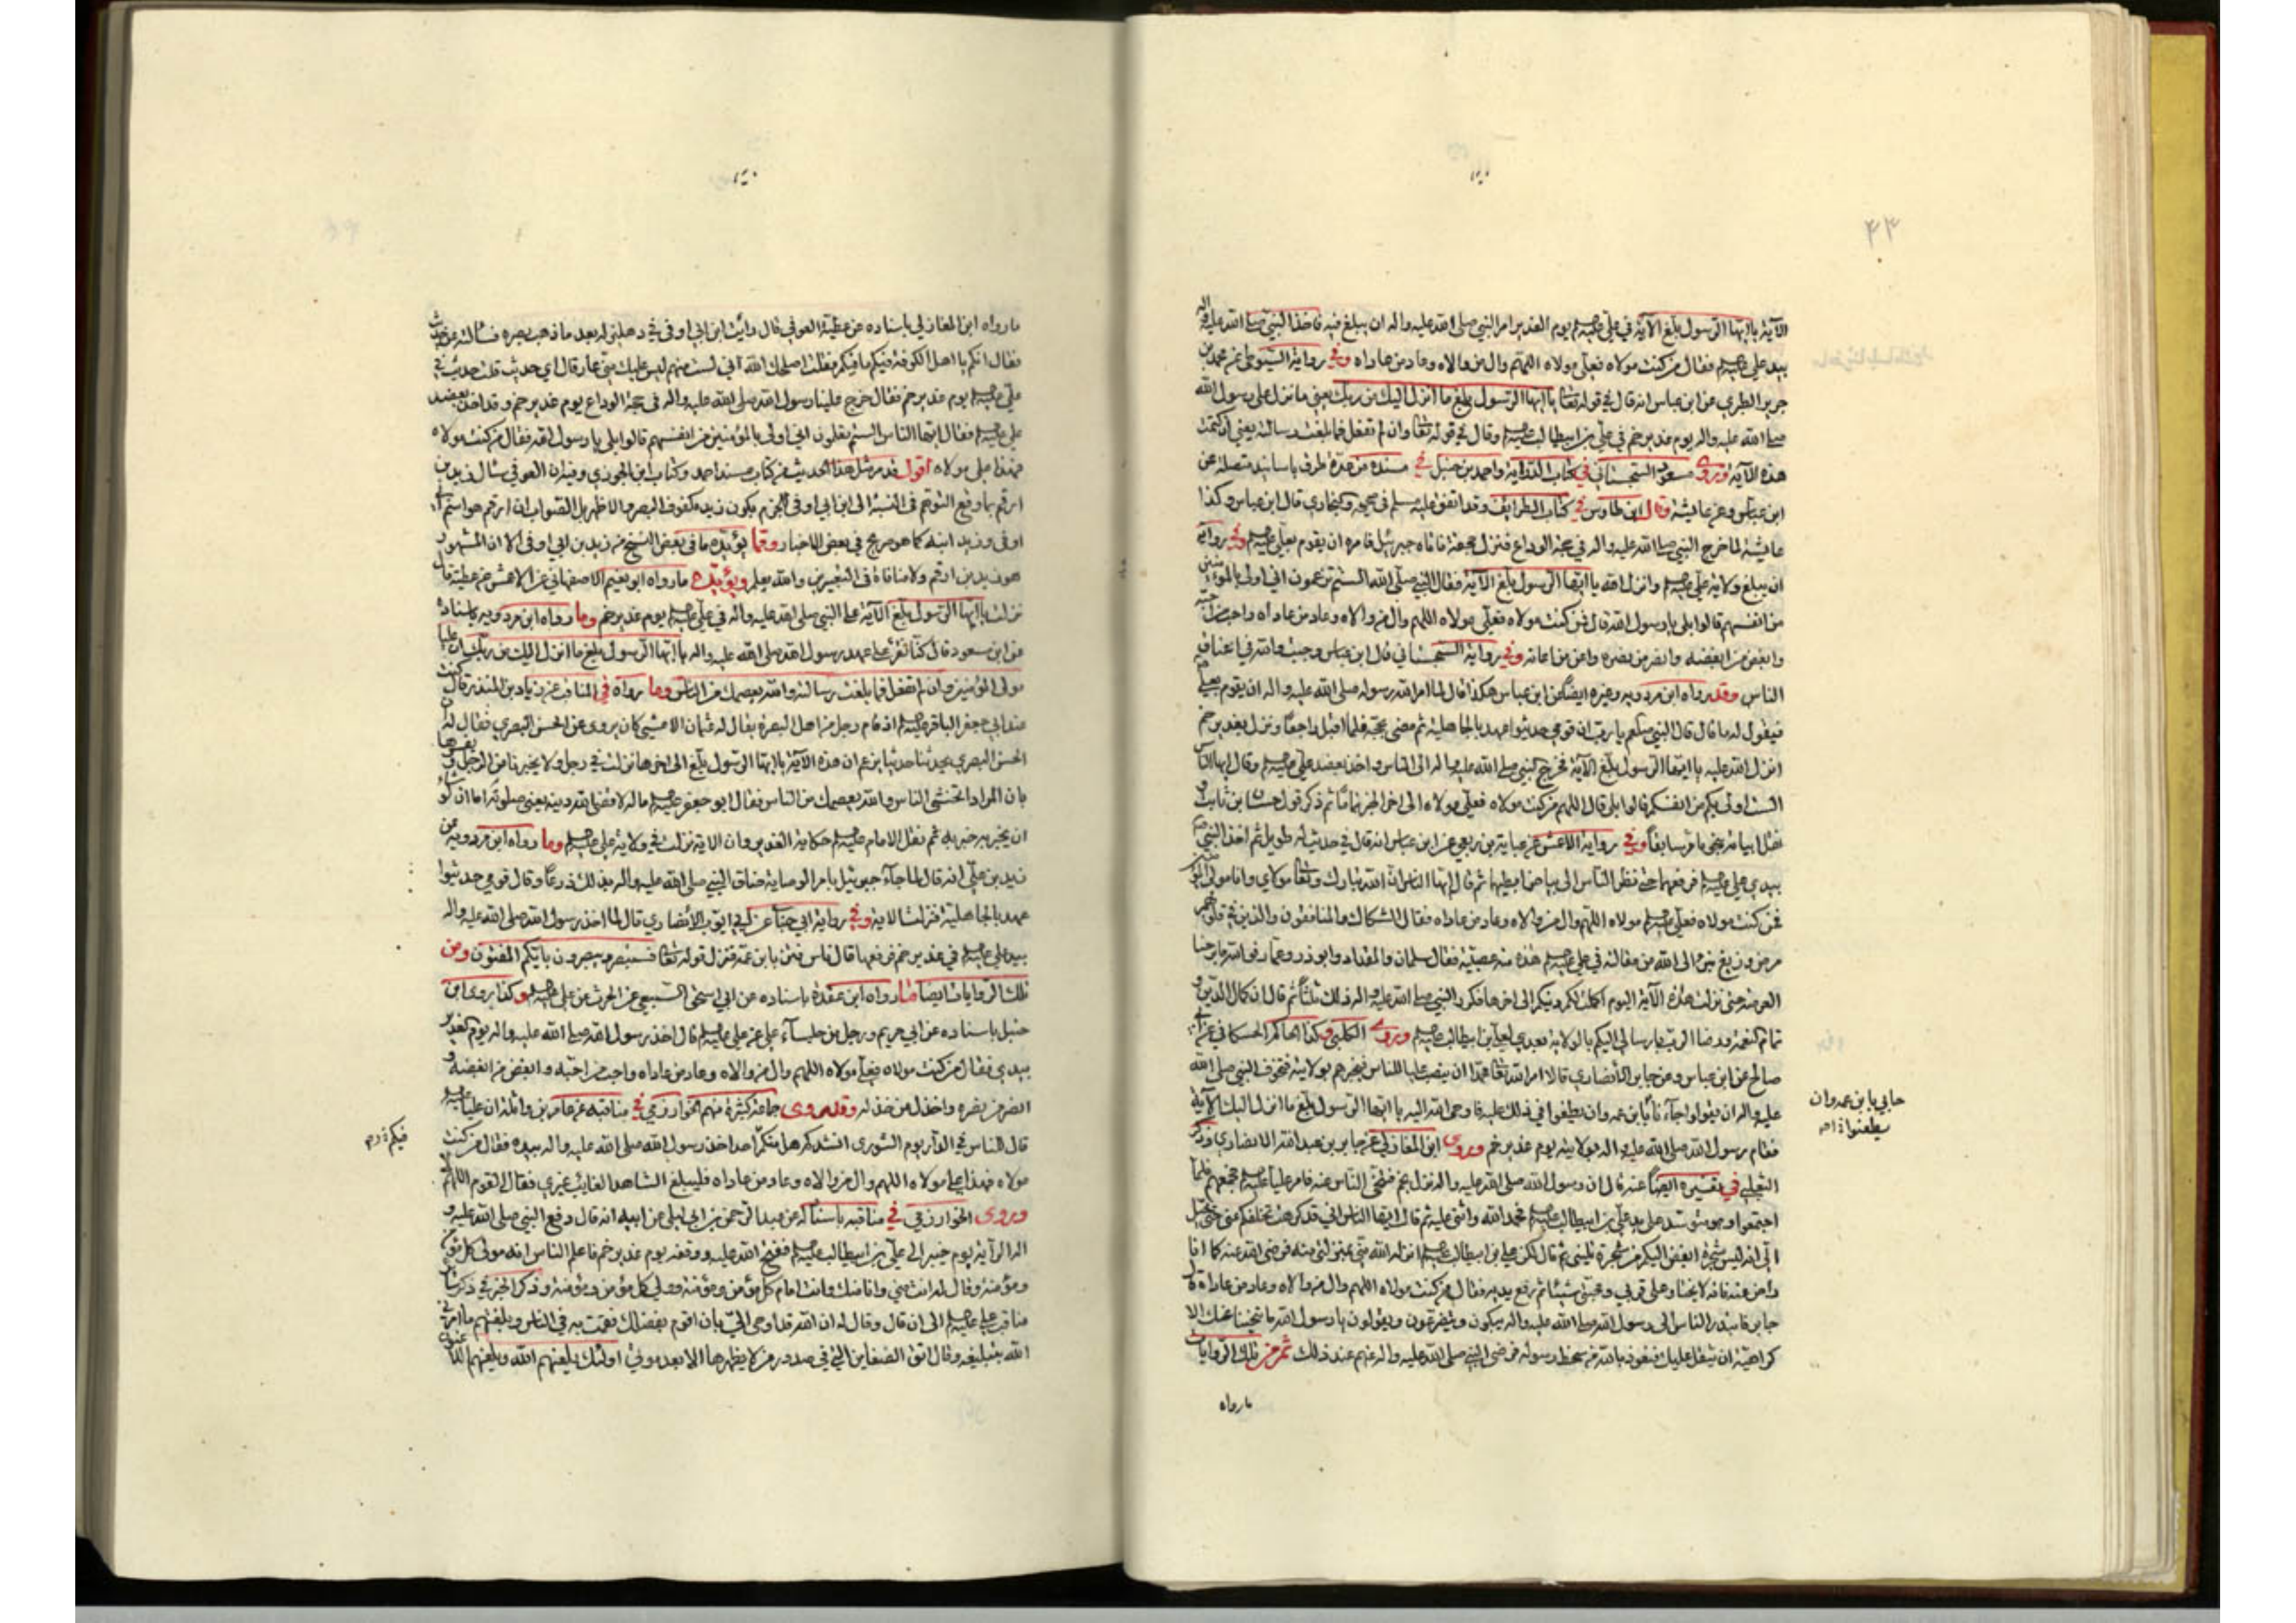 ۴۳
الآية يا ايها الرسول بلغ الآية في علي عليه السلام يوم الغدير امر النبي صلى الله عليه واله ان يبلغ فيه فاخذ النبي صلى الله عليه واله
بيد علي عليه السلام فقال من كنت مولاه فعلي مولاه اللهم وال من والاه وعاد من عاداه وفي رواية السيوطي عن محمد بن
جرير الطبري عن ابن عباس انه قال في قوله تعالى يا ايها الرسول بلغ ما انزل اليك من ربك يعني ما نزل على رسول الله
صلى الله عليه واله يوم غدير خم في علي بن ابيطالب عليه السلام وقال في قوله تعالى وان لم تفعل فما بلغت رسالته يعني ان كتمت
هذه الآية وروى مسعود السجستاني في كتاب الدراية واحمد بن حنبل في مسنده من عدة طرق باسانيد متصلة عن
ابن عباس وعن عايشة وقال ابن طاوس في كتاب الطرائف وقد اتفق عليه مسلم في صحيحه والبخاري قال ابن عباس وكذا
عايشة لما خرج النبي صلى الله عليه واله في حجة الوداع فنزل جحفة فاتاه جبرئيل فامره ان يقوم بعلي عليه السلام وفي رواية
ان يبلغ ولاية علي عليه السلام وانزل الله يا ايها الرسول بلغ الآية فقال النبي صلى الله الستم تزعمون اني اولى بالمؤمنين
من انفسهم قالوا بلى يا رسول الله قال فمن كنت مولاه فعلي مولاه اللهم وال من والاه وعاد من عاداه واحب من احبه
وابغض من ابغضه وانصر من نصره واعن من اعانه وفي رواية السجستاني قال ابن عباس وجبت والله في اعناق
الناس وقد رواه ابن مردويه وغيره ايضا عن ابن عباس هكذا قال لما امر الله رسوله صلى الله عليه واله ان يقوم بعلي
فيقول له ما قال قال النبي صلعم يا رب ان قومي حديثوا عهد بالجاهلية ثم مضى بحجه فلما اقبل راجعا ونزل بغدير خم
انزل الله عليه يا ايها الرسول بلغ الآية فخرج النبي صلى الله عليه واله الى الناس واخذ بعضد علي عليه السلام وقال ايها الناس
الست اولى بكم من انفسكم قالوا بلى قال اللهم من كنت مولاه فعلي مولاه الى اخر الخبر تماما ثم ذكر قول حسان بن ثابت
نقل ابياته نحو ما مر سابقا وفي رواية الاعمش عن عباية بن ربعي عن ابن عباس انه قال في حديث له طويل ثم اخذ النبي
بيدي علي عليه السلام فرفعهما حتى نظر الناس الى بياض ابطيهما ثم قال ايها الناس ان الله تبارك وتعالى مولاي وانا مولى المؤمنين
فمن كنت مولاه فعلي عليه السلام مولاه اللهم وال من والاه وعاد من عاداه فقال الشكاك والمنافقون والذين في قلوبهم
مرض وزيغ نبرأ الى الله من مقالته في علي عليه السلام هذه منه عصبية فقال سلمان والمقداد وابو ذر وعمار فوالله ما برحنا
العرصة حتى نزلت هذه الآية اليوم اكملت لكم دينكم الى اخرها فكرر النبي صلى الله عليه واله ذلك ثلثا ثم قال ان كمال الدين و
تمام النعمة ورضا الرب بارسالي اليكم بالولاية بعدي لعلي بن ابيطالب عليه السلام وروى الكلبي وكذا الحاكم الحسكاني عن ابي
صالح عن ابن عباس وعن جابر الأنصاري قالا امر الله تعالى محمدا ان ينصب عليا للناس فيخبرهم بولايته فتخوف النبي صلى الله
عليه واله ان يقولوا حابى ابن عمه وان يطغوا في ذلك عليه فاوحى الله اليه يا ايها الرسول بلغ ما انزل اليك الآية
فقام رسول الله صلى الله عليه واله بولايته يوم غدير خم وروى ابن المغازلي عن جابر بن عبد الله الانصاري وذكر
الثعلبي في تفسيره ايضا عنه قال ان رسول الله صلى الله عليه واله نزل بخم فتنحى الناس عنه فامر عليا عليه السلام فجمعهم فلما
اجتمعوا وهو متوسد على يد علي بن ابيطالب عليه السلام فحمد الله واثنى عليه ثم قال ايها الناس اني قد كرهت تخلفكم عني حتى خيل
الي انه ليس شجرة ابغض اليكم من شجرة تليني ثم قال لكن علي بن ابيطالب عليه السلام انزله الله مني بمنزلتي منه فرضي الله عنه كما انا
راض عنه فانه لا يختار على قربي ومحبتي شيئا ثم رفع يديه فقال من كنت مولاه اللهم وال من والاه وعاد من عاداه قال
جابر فابتدر الناس الى رسول الله صلى الله عليه واله يبكون ويتضرعون ويقولون يا رسول الله ما تنحينا عنك الا
كراهية ان يثقل عليك فنعوذ بالله من سخط رسوله فرضي النبي صلى الله عليه واله عنهم عند ذلك ثم من تلك الروايات
ما رواه
حابى يا بن عمه وان
يطعنوا
ما رواه ابن المغازلي باسناده عن عطية العوفي قال رأيت ابن ابي اوفى في دهليز له بعد ما ذهب بصره فسألته عن حديث
فقال انكم يا اهل الكوفة فيكم ما فيكم فقلت اصلحك الله اني لست منهم ليس عليك مني عار قال اي حديث قلت حديث في
علي عليه السلام يوم غدير خم فقال خرج علينا رسول الله صلى الله عليه واله في حجة الوداع يوم غدير خم وقد اخذ بعضد
علي عليه السلام فقال ايها الناس الستم تعلمون اني اولى بالمؤمنين من انفسهم قالوا بلى يا رسول الله فقال من كنت مولاه
فهذا علي مولاه اقول قد مر مثل هذا الحديث من كتاب مسند احمد وكتاب ابن الجوزي وفيه ان العوفي سئال زيد بن
ارقم
اوفى وزيد ابنه كما هو صريح في بعض الاخبار ومما يؤيده ما في بعض النسخ من زيد بن ابي اوفى الا ان المشهور
هو زيد بن ارقم ولا منافاة في التعبيرين والله يعلم ويؤيده ما رواه ابو نعيم الاصفهاني عن الاعمش عن عطية قال
نزلت يا ايها الرسول بلغ الآية على النبي صلى الله عليه واله في علي عليه السلام يوم غدير خم وما رواه ابن مردويه باسناده
عن ابن مسعود قال كنا نقرء على عهد رسول الله صلى الله عليه واله يا ايها الرسول بلغ ما انزل اليك من ربك ان عليا
مولى المؤمنين وان لم تفعل فما بلغت رسالته والله يعصمك من الناس وما رواه في المناقب عن زياد بن المنذر قال كنت
عند ابي جعفر الباقر عليه السلام اذ قام رجل من اهل البصرة يقال له عثمان الاعشى كان يروي عن الحسن البصري فقال له ان
الحسن البصري يحدثنا حديثا يزعم ان هذه الآية يا ايها الرسول بلغ الى اخرها نزلت في رجل ولا يخبرنا من الرجل ويفسرها
بان المراد اتخشى الناس والله يعصمك من الناس فقال ابو جعفر عليه السلام ما له لا قضى الله دينه يعني صلوته اما ان لو شاء
ان يخبر به خبر به ثم نقل الامام عليه السلام حكاية الغدير وان الاية نزلت في ولاية علي عليه السلام وما رواه ابن مردويه عن
زيد بن علي انه قال لما جاء جبرئيل بامر الوصاية ضاق النبي صلى الله عليه واله بذلك ذرعا وقال قومي حديثوا
عهد بالجاهلية فنزلت الاية وفي رواية ابي جناب عن ابي ايوب الأنصاري قال لما اخذ رسول الله صلى الله عليه واله
بيد علي عليه السلام في غدير خم فرفعها قال ناس فتن بابن عمه فنزل قوله تعالى فستبصر ويبصرون بايكم المفتون ومن
تلك الروايات ايضا ما رواه ابن عقدة باسناده عن ابي اسحق السبيعي عن الحرث عن علي عليه السلام وكذا روى ابن
حنبل باسناده عن ابي مريم ورجل من جلساء علي عن علي عليه السلام قال اخذ رسول الله صلى الله عليه واله يوم الغدير
بيدي فقال من كنت مولاه فعلي مولاه اللهم وال من والاه وعاد من عاداه واحب من احبه وابغض من ابغضه و
انصر من نصره واخذل من خذله وقد روى جماعة كثيرة منهم الخوارزمي في مناقبه عن عامر بن واثلة ان عليا عليه السلام
قال للناس في الدار يوم الشورى انشدكم هل منكم احد اخذ رسول الله صلى الله عليه واله بيده فقال من كنت
مولاه فهذا علي مولاه اللهم وال من والاه وعاد من عاداه فليبلغ الشاهد الغايب غيري فقال القوم اللهم لا
وروى الخوارزمي في مناقبه باسناده عن عبد الرحمن بن ابي ليلى عن ابيه انه قال دفع النبي صلى الله عليه و
اله الراية يوم خيبر الى علي بن ابيطالب عليه السلام ففتح الله عليه ووقفه يوم غدير خم فاعلم الناس انه مولى كل مؤمن
ومؤمنة وقال له انت مني وانا منك وانت امام كل مؤمن ومؤمنة وولي كل مؤمن ومؤمنة وذكر الخبر في ذكر سائر
مناقب علي عليه السلام الى ان قال وقال له ان الله قد اوحى الي بان اقوم بفضلك فقمت به في الناس وبلغتهم ما امرني
الله بتبليغه وقال اتق الضغاين التي في صدور من لا يظهرها الا بعد موتي اولئك يلعنهم الله ويلعنهم اللاعنون
فيكم